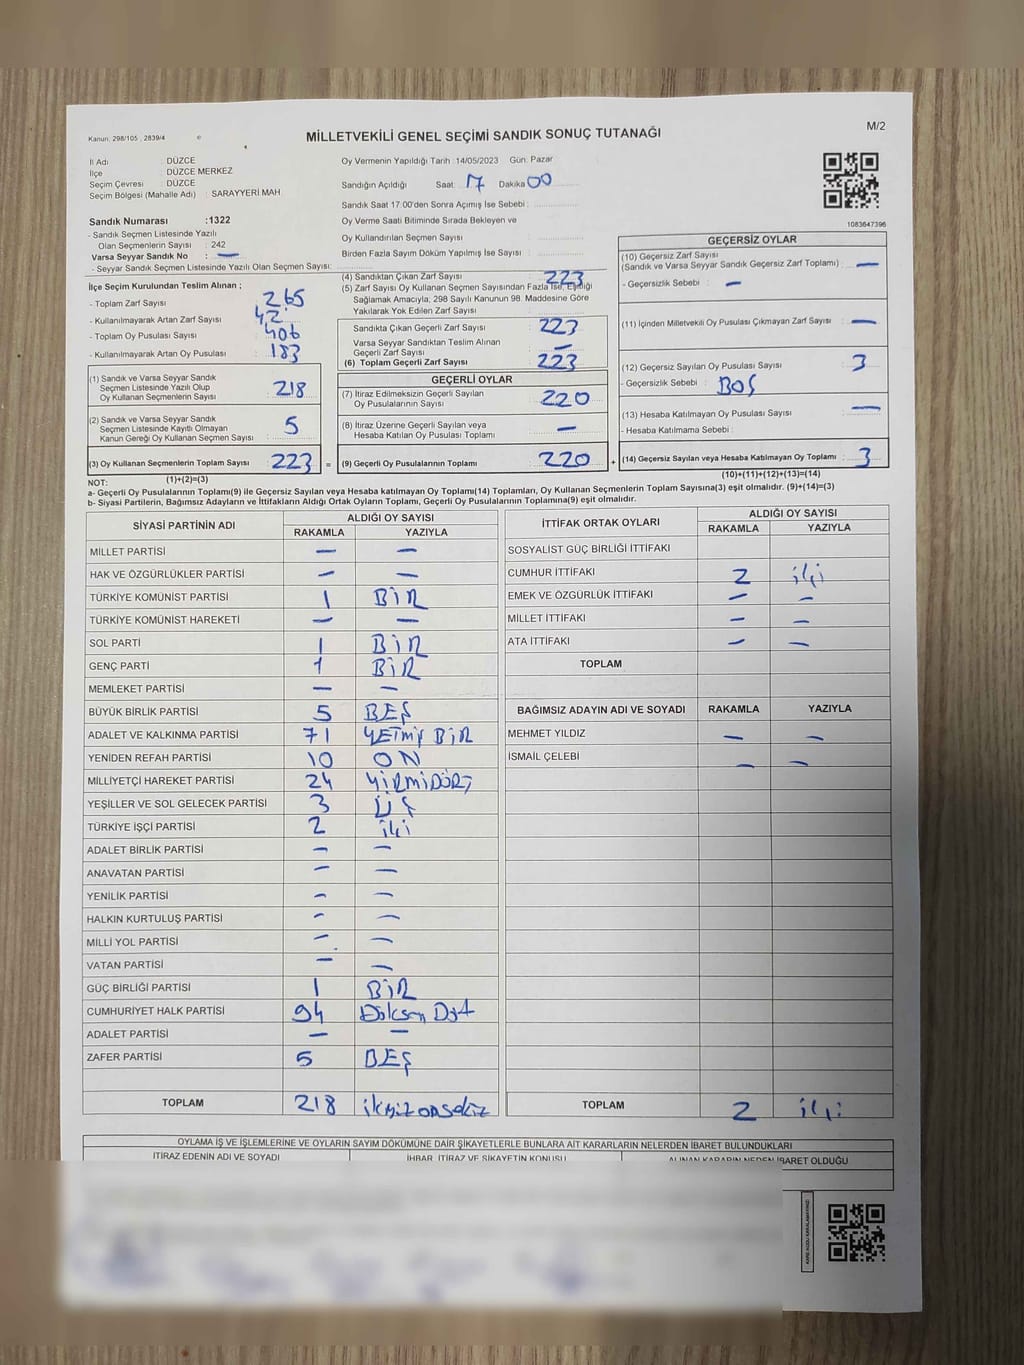 Kanun: 298/105 , 2839/4
MİLLETVEKİLİ GENEL SEÇİMİ SANDIK SONUÇ TUTANAĞI
M/2
İl Adı : DÜZCE
İlçe : DÜZCE MERKEZ
Seçim Çevresi : DÜZCE
Seçim Bölgesi (Mahalle Adı) : SARAYYERİ MAH
Oy Vermenin Yapıldığı Tarih :14/05/2023 Gün: Pazar
Sandığın Açıldığı Saat: 17 Dakika 00
Sandık Saat 17:00'den Sonra Açımış İse Sebebi :
Oy Verme Saati Bitiminde Sırada Bekleyen ve
Oy Kullandırılan Seçmen Sayısı
Birden Fazla Sayım Döküm Yapılmış İse Sayısı :
1083647396
Sandık Numarası :1322
- Sandık Seçmen Listesinde Yazılı
Olan Seçmenlerin Sayısı : 242
Varsa Seyyar Sandık No : —
- Seyyar Sandık Seçmen Listesinde Yazılı Olan Seçmen Sayısı:
İlçe Seçim Kurulundan Teslim Alınan ;
- Toplam Zarf Sayısı 265
- Kullanılmayarak Artan Zarf Sayısı 42
- Toplam Oy Pusulası Sayısı 406
- Kullanılmayarak Artan Oy Pusulası 183
(1) Sandık ve Varsa Seyyar Sandık
Seçmen Listesinde Yazılı Olup
Oy Kullanan Seçmenlerin Sayısı 218
(2) Sandık ve Varsa Seyyar Sandık
Seçmen Listesinde Kayıtlı Olmayan
Kanun Gereği Oy Kullanan Seçmen Sayısı 5
(3) Oy Kullanan Seçmenlerin Toplam Sayısı 223 =
(1)+(2)=(3)
(4) Sandıktan Çıkan Zarf Sayısı 223
(5) Zarf Sayısı Oy Kullanan Seçmen Sayısından Fazla İse, Eşitliği
Sağlamak Amacıyla; 298 Sayılı Kanunun 98. Maddesine Göre
Yakılarak Yok Edilen Zarf Sayısı
Sandıkta Çıkan Geçerli Zarf Sayısı 223
Varsa Seyyar Sandıktan Teslim Alınan
Geçerli Zarf Sayısı —
(6) Toplam Geçerli Zarf Sayısı 223
GEÇERLİ OYLAR
(7) İtiraz Edilmeksizin Geçerli Sayılan
Oy Pusulalarının Sayısı 220
(8) İtiraz Üzerine Geçerli Sayılan veya
Hesaba Katılan Oy Pusulası Toplamı —
(9) Geçerli Oy Pusulalarının Toplamı 220 +
GEÇERSİZ OYLAR
(10) Geçersiz Zarf Sayısı
(Sandık ve Varsa Seyyar Sandık Geçersiz Zarf Toplamı) : —
- Geçersizlik Sebebi : —
(11) İçinden Milletvekili Oy Pusulası Çıkmayan Zarf Sayısı : —
(12) Geçersiz Sayılan Oy Pusulası Sayısı : 3
- Geçersizlik Sebebi : BOŞ
(13) Hesaba Katılmayan Oy Pusulası Sayısı : —
- Hesaba Katılmama Sebebi :
(14) Geçersiz Sayılan veya Hesaba Katılmayan Oy Toplamı : 3
(10)+(11)+(12)+(13)=(14)
NOT:
a- Geçerli Oy Pusulalarının Toplamı(9) ile Geçersiz Sayılan veya Hesaba katılmayan Oy Toplamı(14) Toplamları, Oy Kullanan Seçmenlerin Toplam Sayısına(3) eşit olmalıdır. (9)+(14)=(3)
b- Siyasi Partilerin, Bağımsız Adayların ve İttifakların Aldığı Ortak Oyların Toplamı, Geçerli Oy Pusulalarının Toplamına(9) eşit olmalıdır.
SİYASİ PARTİNİN ADI ALDIĞI OY SAYISI
RAKAMLA YAZIYLA
MİLLET PARTİSİ — —
HAK VE ÖZGÜRLÜKLER PARTİSİ — —
TÜRKİYE KOMÜNİST PARTİSİ 1 BİR
TÜRKİYE KOMÜNİST HAREKETİ — —
SOL PARTİ 1 BİR
GENÇ PARTİ 1 BİR
MEMLEKET PARTİSİ — —
BÜYÜK BİRLİK PARTİSİ 5 BEŞ
ADALET VE KALKINMA PARTİSİ 71 YETMİŞ BİR
YENİDEN REFAH PARTİSİ 10 ON
MİLLİYETÇİ HAREKET PARTİSİ 24 YİRMİDÖRT
YEŞİLLER VE SOL GELECEK PARTİSİ 3 ÜÇ
TÜRKİYE İŞÇİ PARTİSİ 2 iki
ADALET BİRLİK PARTİSİ — —
ANAVATAN PARTİSİ — —
YENİLİK PARTİSİ — —
HALKIN KURTULUŞ PARTİSİ — —
MİLLİ YOL PARTİSİ — —
VATAN PARTİSİ — —
GÜÇ BİRLİĞİ PARTİSİ 1 BİR
CUMHURİYET HALK PARTİSİ 94
ADALET PARTİSİ — —
ZAFER PARTİSİ 5 BEŞ
TOPLAM 218 ikiyüzonsekiz
İTTİFAK ORTAK OYLARI ALDIĞI OY SAYISI
RAKAMLA YAZIYLA
SOSYALİST GÜÇ BİRLİĞİ İTTİFAKI
CUMHUR İTTİFAKI 2 iki
EMEK VE ÖZGÜRLÜK İTTİFAKI — —
MİLLET İTTİFAKI — —
ATA İTTİFAKI — —
TOPLAM
BAĞIMSIZ ADAYIN ADI VE SOYADI RAKAMLA YAZIYLA
MEHMET YILDIZ — —
İSMAİL ÇELEBİ — —
TOPLAM 2 iki
OYLAMA İŞ VE İŞLEMLERİNE VE OYLARIN SAYIM DÖKÜMÜNE DAİR ŞİKAYETLERLE BUNLARA AİT KARARLARIN NELERDEN İBARET BULUNDUKLARI
İTİRAZ EDENİN ADI VE SOYADI İHBAR, İTİRAZ VE ŞİKAYETİN KONUSU ALINAN KARARIN NEDEN İBARET OLDUĞU